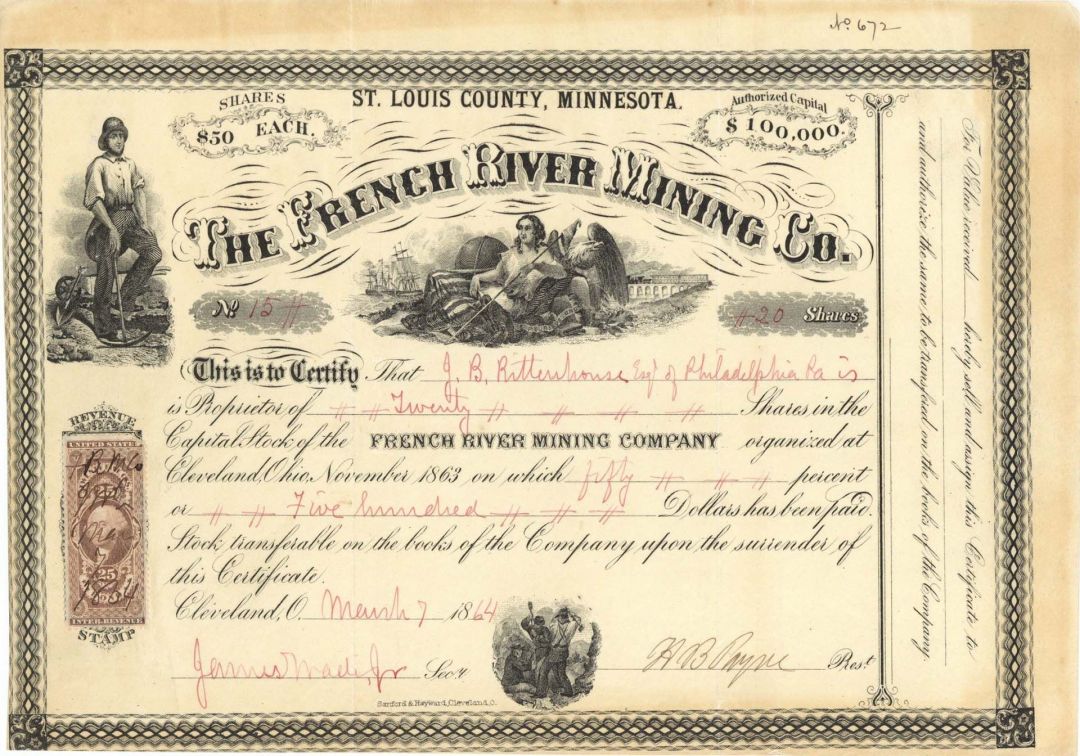 No. 672
SHARES
$50 EACH.
ST. LOUIS COUNTY, MINNESOTA.
Authorized Capital
$100,000.
THE FRENCH RIVER MINING CO.
No 15 〃
〃20 Shares
This is to Certify That J. B. Rittenhouse Esqr of Philadelphia Pa is
is Proprietor of 〃 〃 Twenty 〃 〃 〃 〃 Shares in the
Capital Stock of the FRENCH RIVER MINING COMPANY organized at
Cleveland, Ohio, November 1863 on which fifty 〃 〃 〃 percent
or 〃 〃 Five hundred 〃 〃 〃 Dollars has been paid.
Stock transferable on the books of the Company upon the surrender of
this Certificate.
Cleveland, O. March 7 1864
James Wade, Jr Secy
H B Payne Prest
Sanford & Hayward, Cleveland, O.
REVENUE
UNITED STATES
25
7
1864
INTER. REVENUE
STAMP
For Value received hereby sell and assign this Certificate to
and authorize the same to be transferred on the books of the Company.